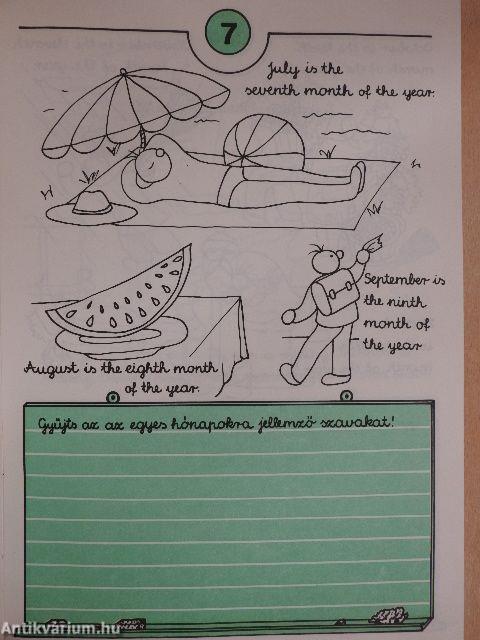 7
July is the
seventh month of the year.
September is
the ninth
month of
the year
August is the eighth month
of the year.
Gyűjts az az egyes hónapokra jellemző szavakat!
Antikvárium.hu